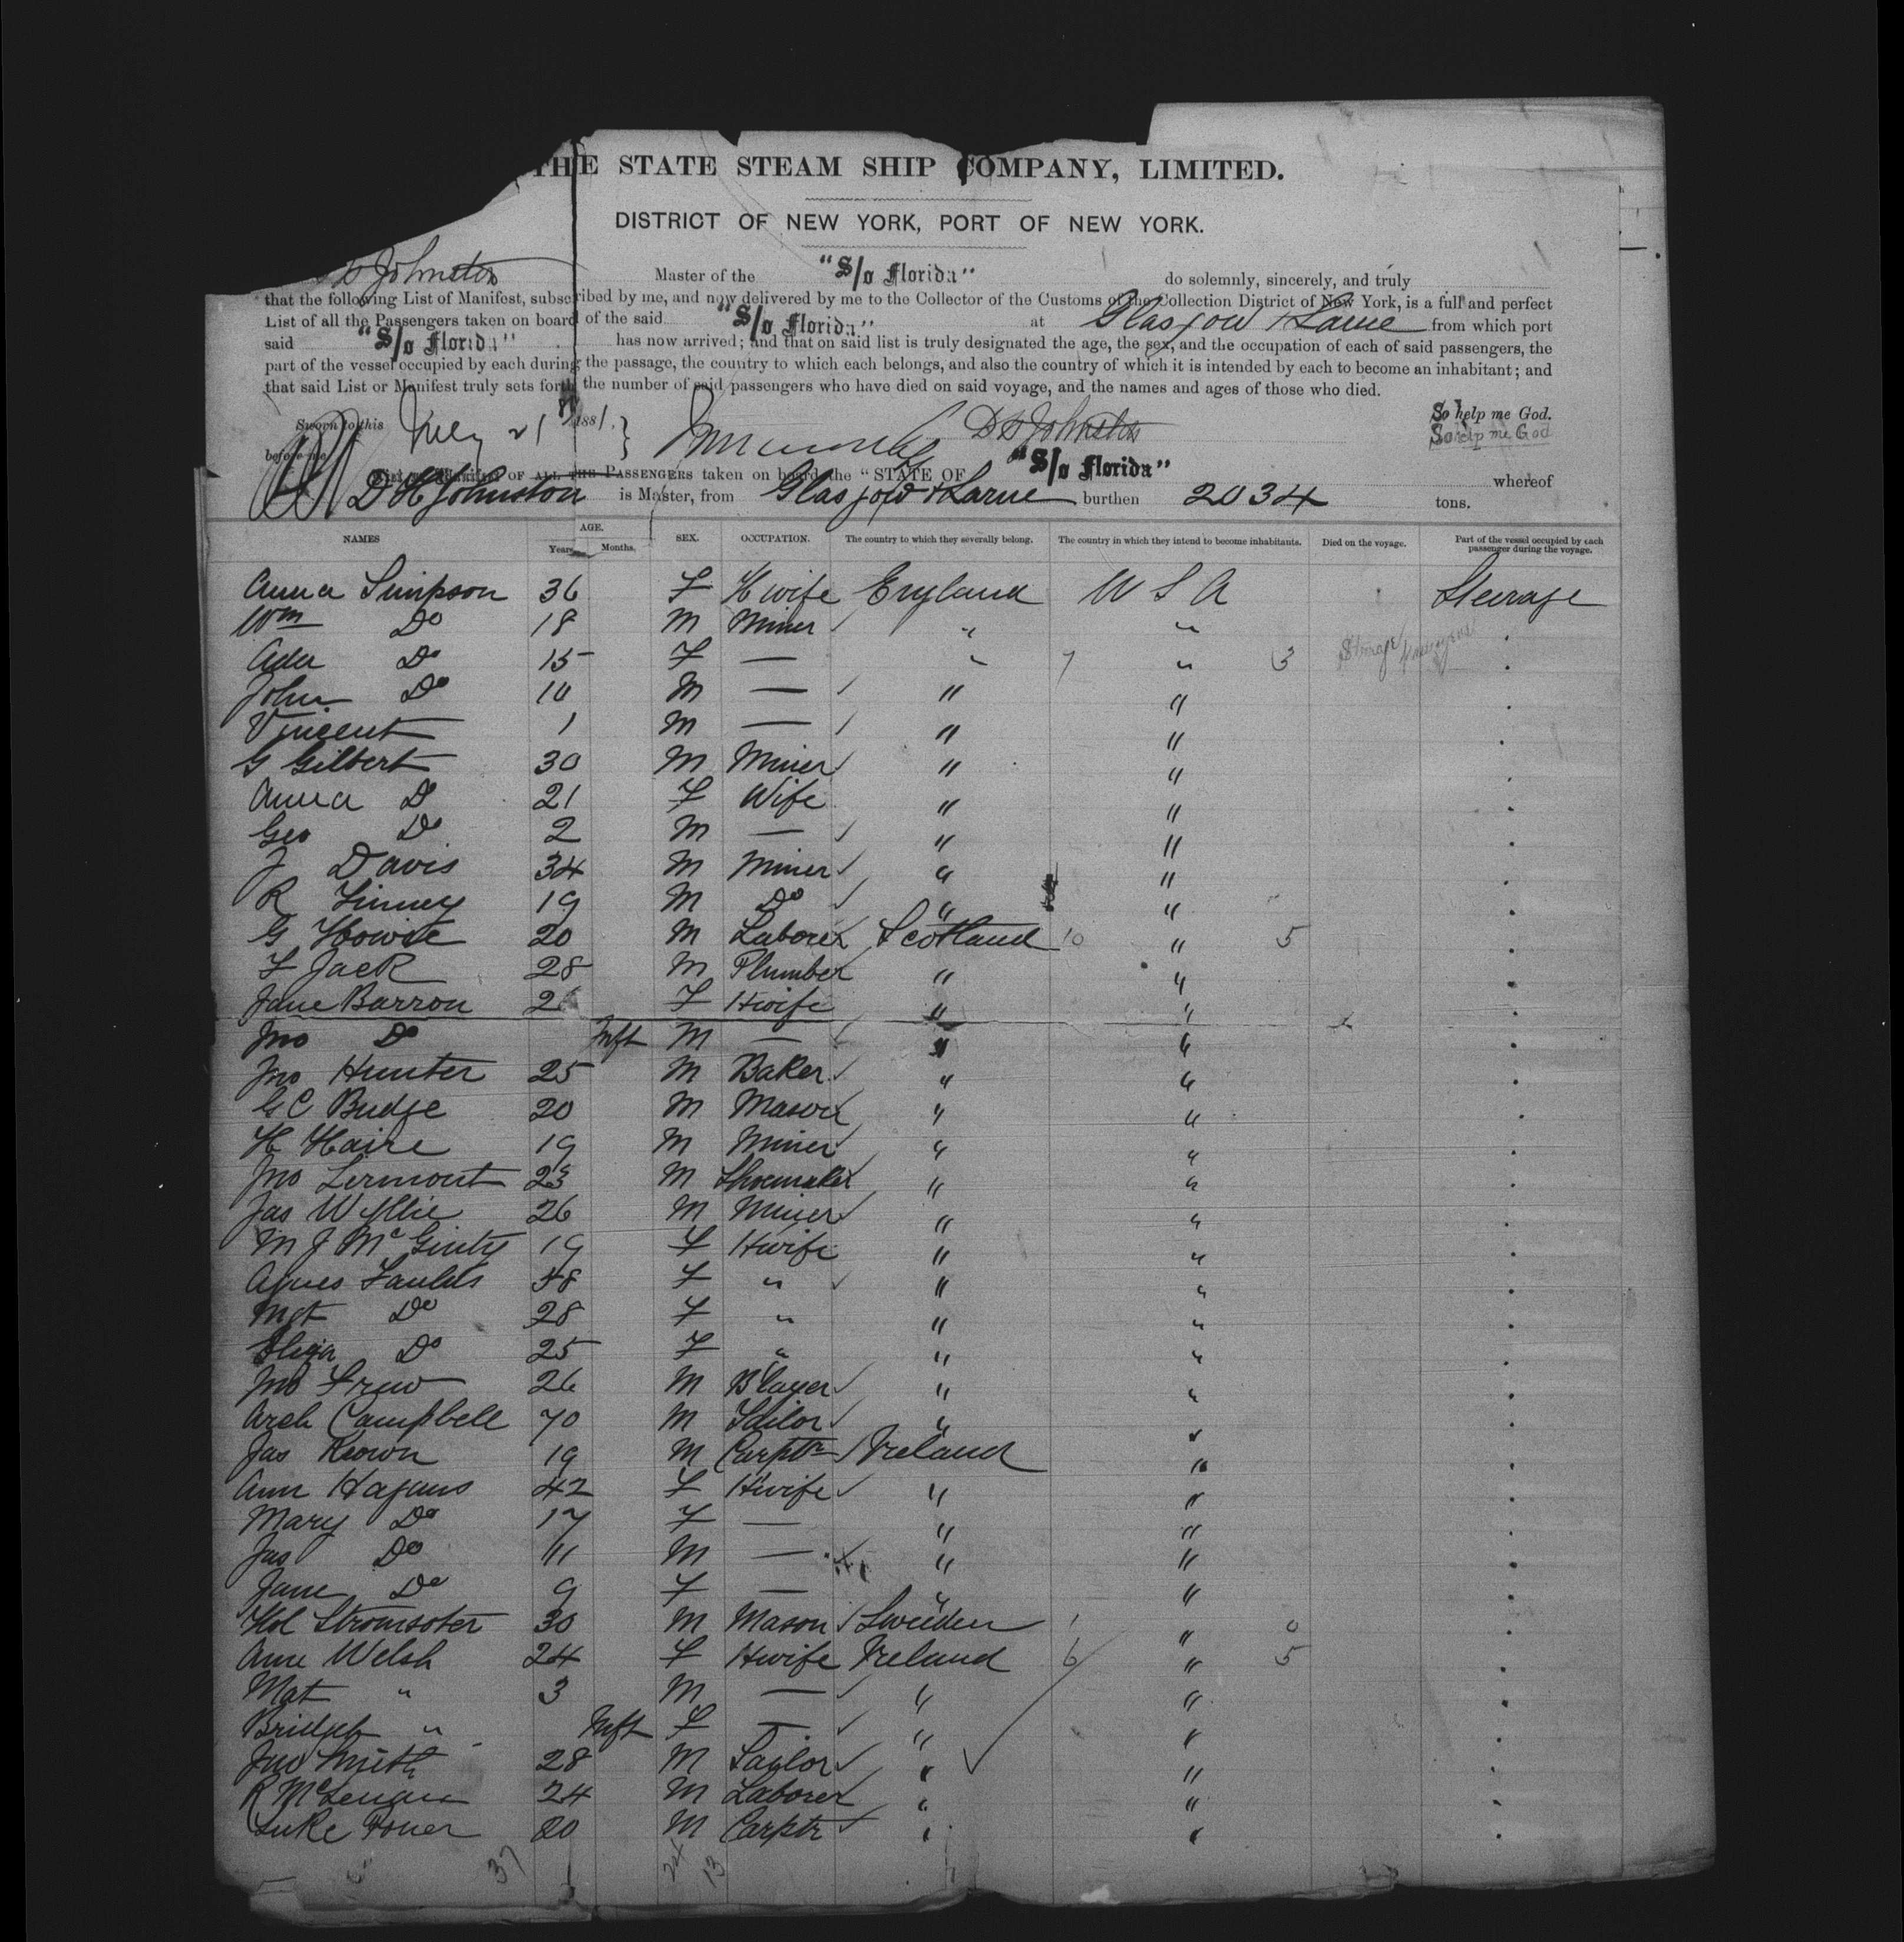 THE STATE STEAM SHIP COMPANY, LIMITED.
DISTRICT OF NEW YORK, PORT OF NEW YORK.
Johnston Master of the "S/o Florida" do solemnly, sincerely, and truly
that the following List of Manifest, subscribed by me, and now delivered by me to the Collector of the Customs of the Collection District of New York, is a full and perfect
List of all the Passengers taken on board of the said "S/o Florida" at Glasgow & Larne from which port
said "S/o Florida" has now arrived; and that on said list is truly designated the age, the sex, and the occupation of each of said passengers, the
part of the vessel occupied by each during the passage, the country to which each belongs, and also the country of which it is intended by each to become an inhabitant; and
that said List or Manifest truly sets forth the number of said passengers who have died on said voyage, and the names and ages of those who died.
So help me God.
Sworn to this July 21 1881. Johnston So help me God
before me
OF ALL THE PASSENGERS taken on board the "STATE OF "S/o Florida" whereof
D H Johnston is Master, from Glasgow & Larne burthen 2034 tons.
NAMES AGE. Years Months. SEX. OCCUPATION. The country to which they severally belong. The country in which they intend to become inhabitants. Died on the voyage. Part of the vessel occupied by each passenger during the voyage.
Anna Simpson 36 F Hwife England U S A Steerage
Wm Do 18 M Miner " "
Ada Do 15 F — " 7 " 3
John Do 10 M — " "
Vincent 1 M — " "
G Gilbert 30 M Miner " "
Anna Do 21 F Wife " "
Geo Do 2 M — " "
J Davis 34 M Miner " "
R Finney 19 M Do " "
G Howie 20 M Laborer Scotland 10 " 5
F Jack 28 M Plumber " "
Jane Barron F Hwife " "
Jno Do Inft M — " "
Jno Hunter 25 M Baker " "
G C Budge 20 M Mason " "
H Haire 19 M Miner " "
Jno Lermont 23 M Shoemaker " "
Jas Wyllie 26 M Miner " "
M J McGinty 19 F Hwife " "
Agnes Faulds 48 F " " "
Mgt Do 28 F " " "
Eliza Do 25 F " " "
Jno Frew 26 M Blayer " "
Arch Campbell 70 M Tailor " "
Jas Keown 19 M Carptr Ireland "
Ann Hagans 42 F Hwife " "
Mary Do 17 F — " "
Jas Do 11 M — " "
Jane Do 9 F — " "
Stromsoter 30 M Mason Sweden 1 " 0
Anne Welsh 24 F Hwife Ireland 6 " 5
Mat " 3 M — " "
Bridget " Inft F — " "
Jno Smith 28 M Sailor " "
R 24 M Laborer " "
Luke 20 M Carptr " "
37 24 13